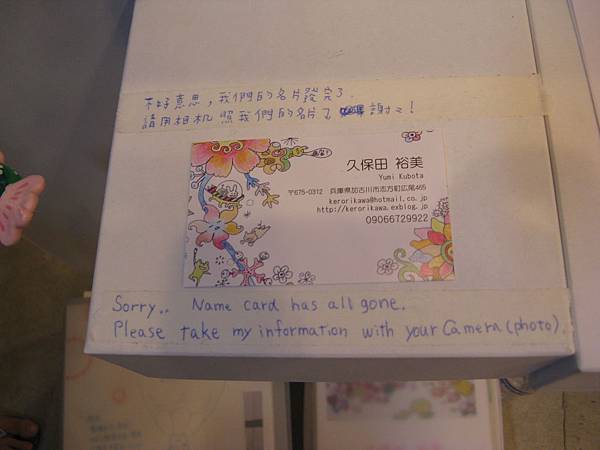 不好意思，我們的名片發完了.
請用相机 照我們的名片了 謝々!
久保田 裕美
Yumi Kubota
〒675-0312 兵庫県加古川市志方町広尾465
kerorikawa@hotmail.co.jp
http://kerorikawa.exblog.jp/
09066729922
Sorry.. Name card has all gone.
Please take my information with your Camera (photo).